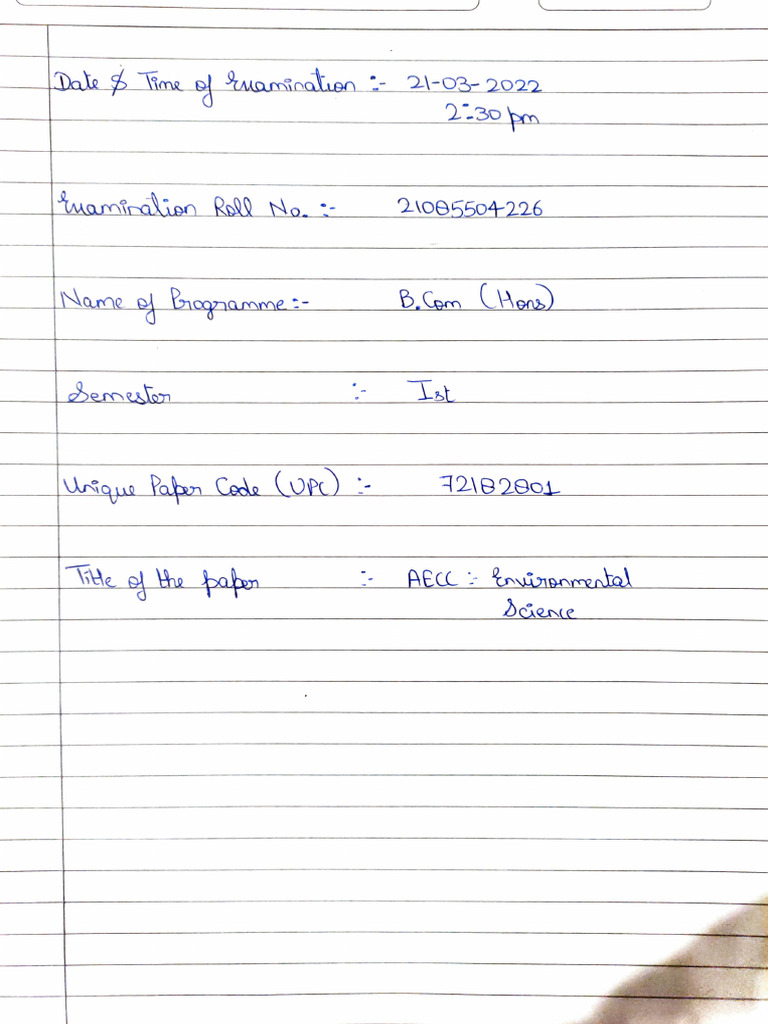 Date & Time of Examination :- 21-03-2022
2:30 pm
Examination Roll No. :- 21085504226
Name of Programme:- B.Com (Hons)
Semester :- Ist
Unique Paper Code (UPC) :- 72182801
Title of the paper :- AECC :- Environmental
Science